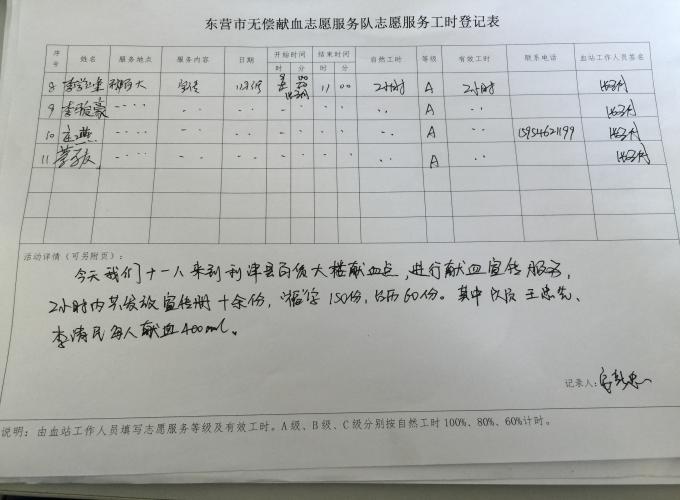 东营市无偿献血志愿服务队志愿服务工时登记表
序号 姓名 服务地点 服务内容 日期 开始时间 结束时间 自然工时 等级 有效工时 联系电话 血站工作人员签名
时 分 时 分
8 宣传 11 00 2小时 A 2小时
9 李 豪 A
10 燕 A 15954621199
11 A
活动详情(可另附页):
今天我们十一人来到利津县百货大楼献血点,进行献血宣传服务,
2小时内共发放宣传册十余份,福字150份,日历60份。其中队员王忠先、
李清民每人献血400ml。
记录人:
说明: 由血站工作人员填写志愿服务等级及有效工时。A级、B级、C级分别按自然工时100%、80%、60%计时。